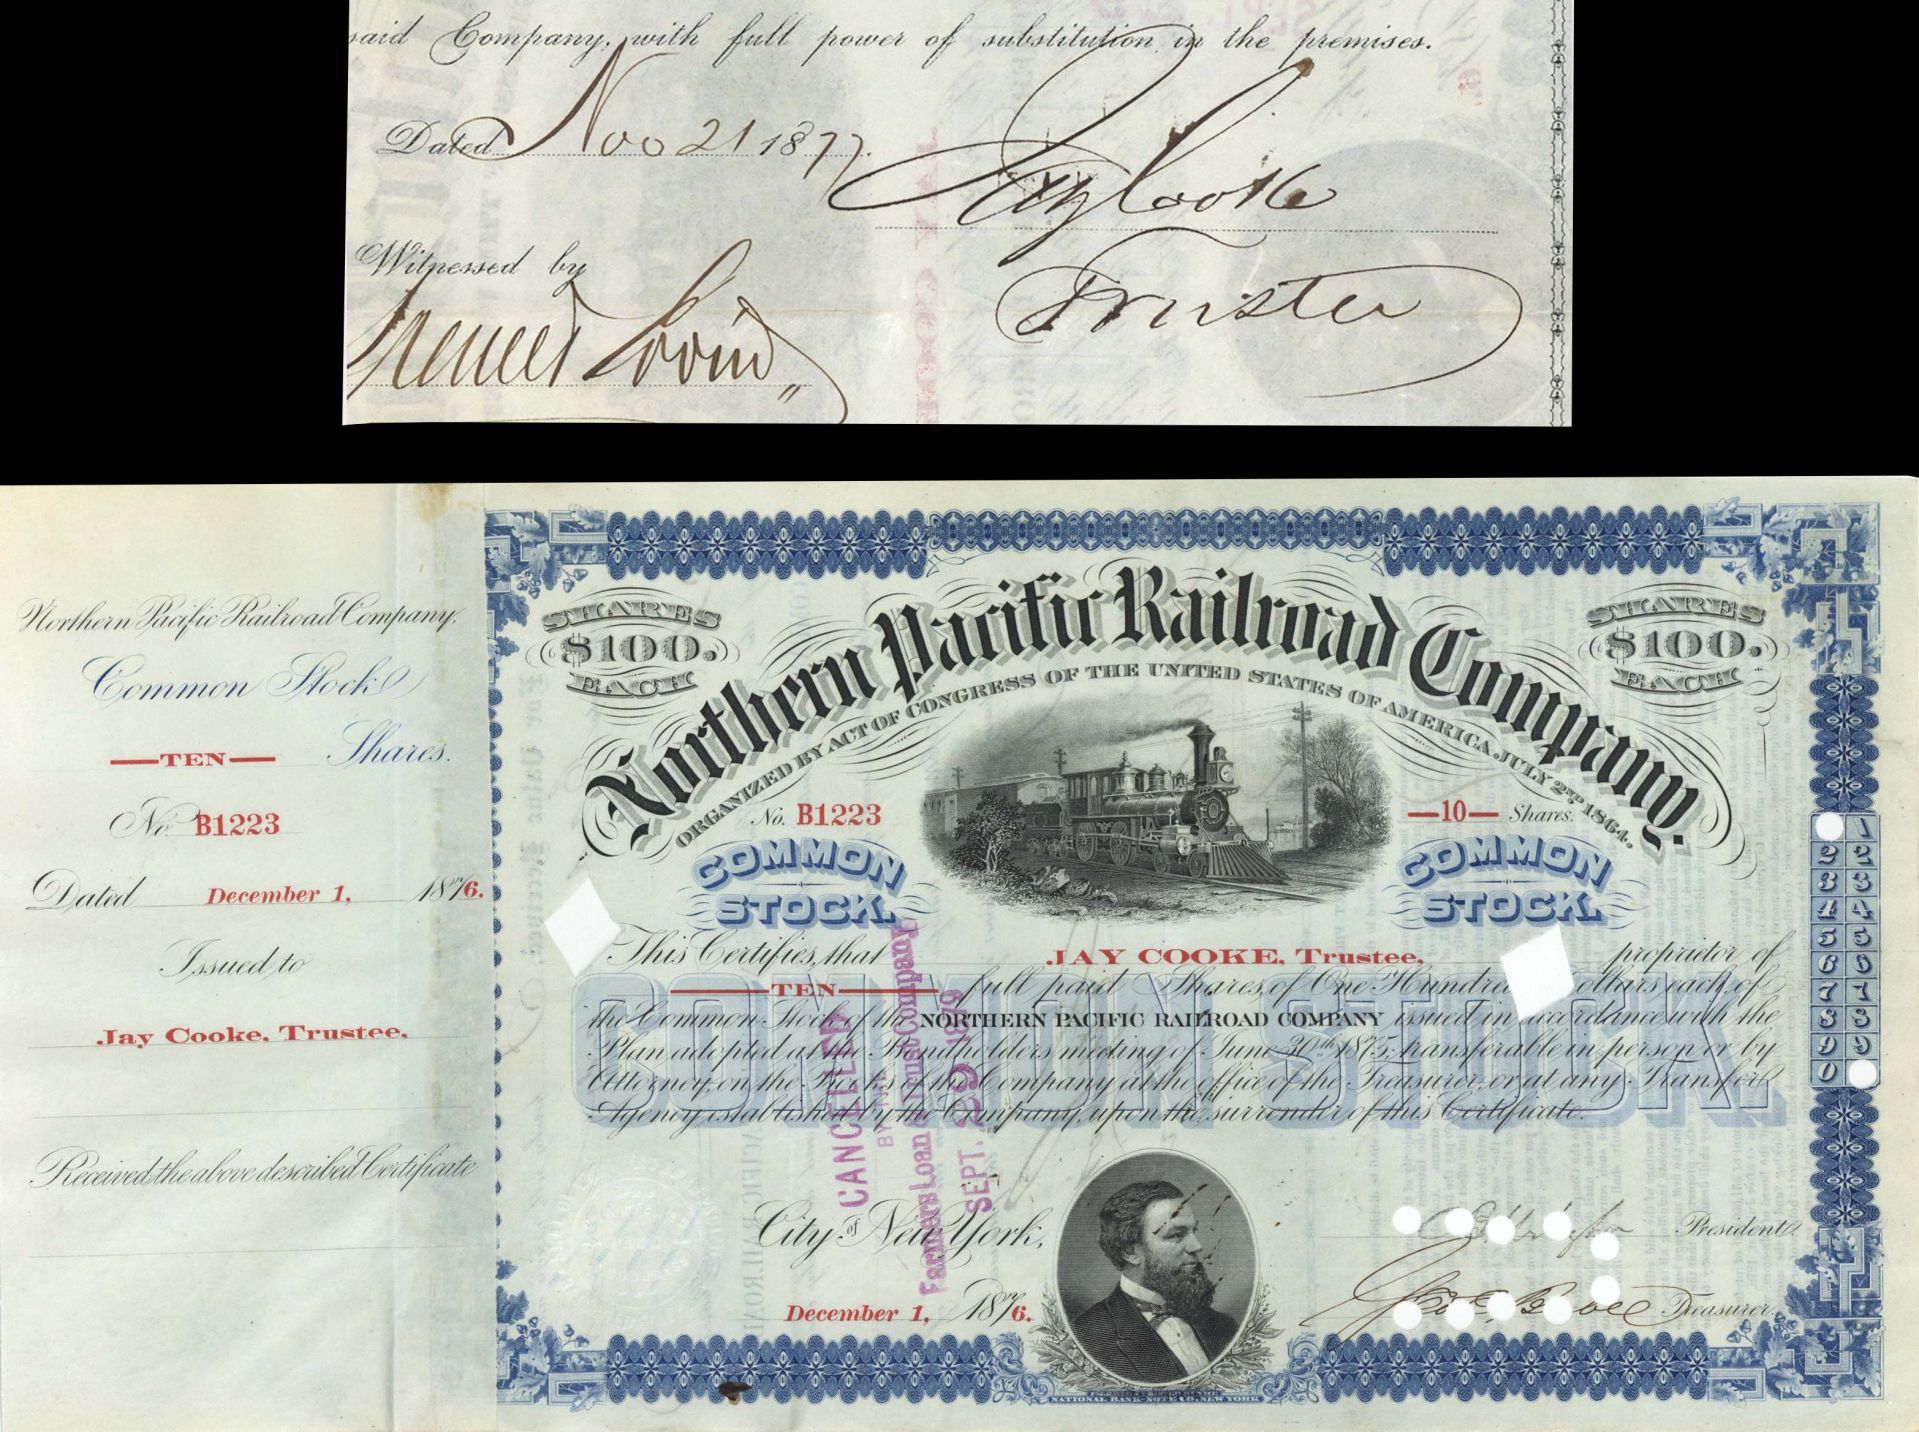 said Company, with full power of substitution in the premises.
Dated Nov 21 1877.
Jay Cooke
Trustee
Witnessed by
Northern Pacific Railroad Company.
Common Stock
—TEN— Shares.
No. B1223
Dated December 1, 1876.
Issued to
Jay Cooke, Trustee,
Received the above described Certificate
SHARES
$100.
EACH
SHARES
$100.
EACH
Northern Pacific Railroad Company.
ORGANIZED BY ACT OF CONGRESS OF THE UNITED STATES OF AMERICA, JULY 2ND 1864.
No. B1223
—10— Shares.
COMMON STOCK.
COMMON STOCK.
This Certifies, that JAY COOKE, Trustee, proprietor of
—TEN— full paid Shares, of One Hundred Dollars each, of
the Common Stock of the NORTHERN PACIFIC RAILROAD COMPANY issued in accordance with the
Plan adopted at the Bondholders meeting of June 30th 1875; transferable in person or by
Attorney, on the Books of the Company at the office of the Treasurer, or at any Transfer
Agency established by the Company, upon the surrender of this Certificate.
COMMON STOCK.
CANCELLED
BY THE
Farmers Loan & Trust Company
SEPT. 29 1879
City of New York,
December 1, 1876.
President.
Treasurer.
NATIONAL BANK NOTE CO. NEW YORK
1
2 2
3 3
4 4
5 5
6 6
7 7
8 8
9 9
0